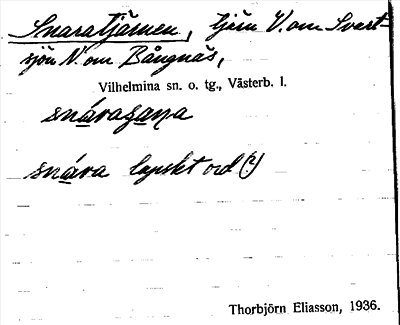 Snaratjärnen, tjärn V. om Svart-
sjön N. om Bångnäs,
Vilhelmina sn. o. tg., Västerb. l.
snára lapskt ord (?)
Thorbjörn Eliasson, 1936.